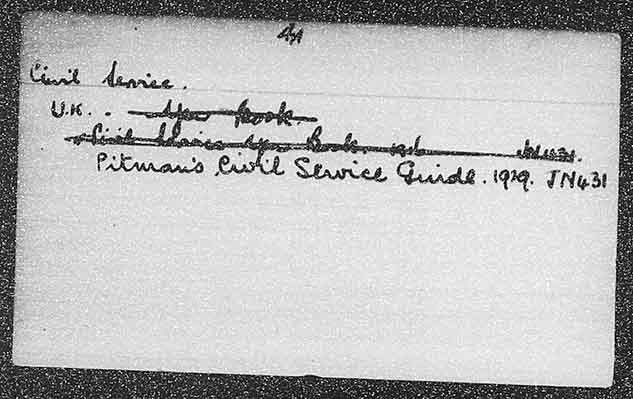 Civil Service.
U.K. - Year Book
Civil Service Year Book. JN431.
Pitman's Civil Service Guide. 1929. JN431